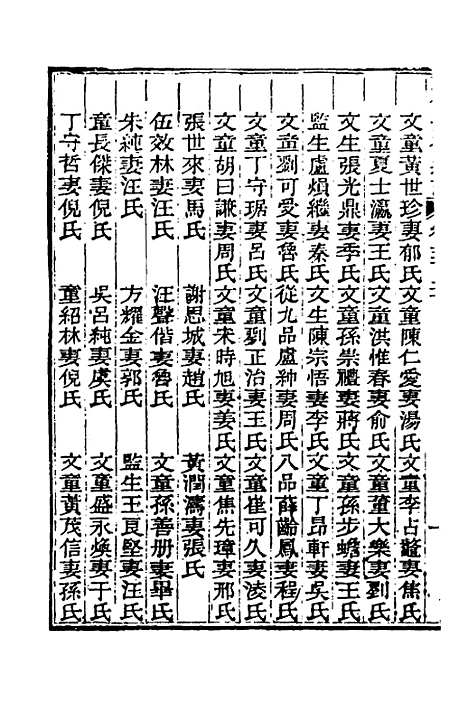 文童黃世珍妻郁氏文童陳仁愛妻湯氏文童李占鼇妻焦氏
文童夏士瀛妻王氏文童洪惟春妻俞氏文童董大樂妻劉氏
文生張光鼎妻季氏文童孫崇禮妻蔣氏文童孫步蟾妻王氏
監生盧煩繼妻秦氏文生陳宗悟妻李氏文童丁昂軒妻吳氏
文童劉可愛妻魯氏從九品盧紳妻周氏八品薛齡鳳妻程氏
文童丁守琚妻呂氏文童劉正治妻王氏文童崔可久妻淩氏
文童胡曰謙妻周氏文童宋時旭妻姜氏文童焦先璋妻邢氏
張世來妻馬氏　謝恩城妻趙氏　黃潤濤妻張氏
伍效林妻汪氏　汪聲偕妻魯氏　文童孫善册妻畢氏
朱純妻汪氏　方耀金妻郭氏　監生王良堅妻汪氏
童長傑妻倪氏　吳呂純妻虞氏　文童盛永煥妻于氏
丁守哲妻倪氏　童紹林妻倪氏　文童黃茂信妻孫氏